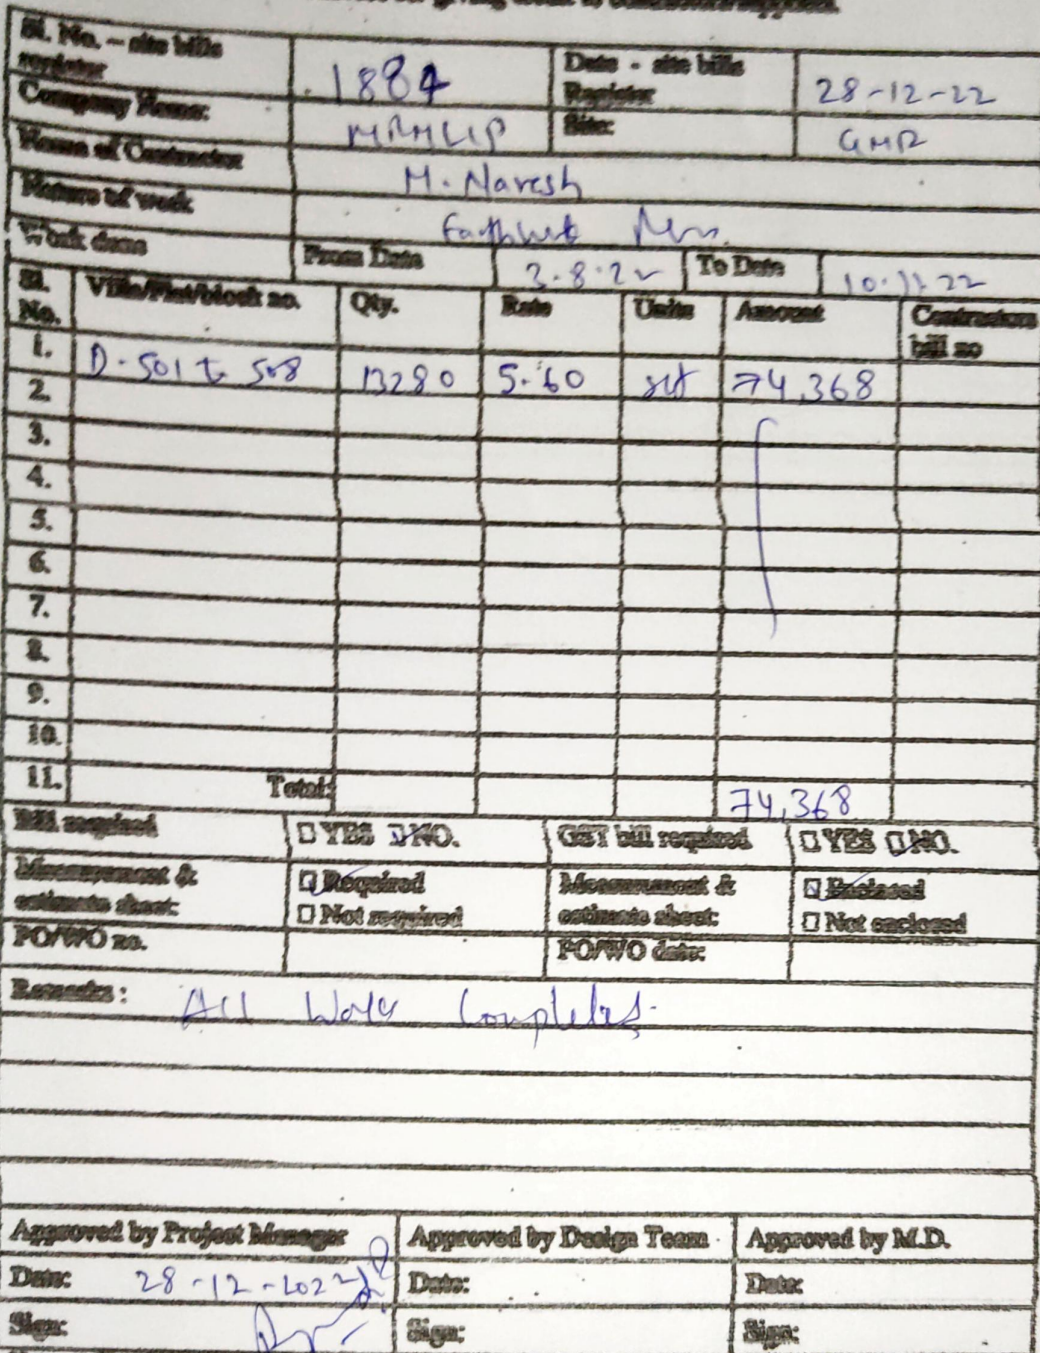 for giving
Sl. No. – site bills register 1884 Date - site bills Register 28-12-22
Company Name: MRMLLP Site: GMR
Name of Contractor M. Naresh
Nature of work
Work done From Date 3.8.22 To Date 10.11.22
Sl. No. Villa/Flat/block no. Qty. Rate Units Amount Contractors bill no
1. D-501 to 508 13280 5.60 sft 74,368
2.
3.
4.
5.
6.
7.
8.
9.
10.
11. Total: 74,368
Bill required YES NO. GST bill required YES NO.
Measurement & estimate sheet: Required Measurement & estimate sheet: Enclosed
Not required Not enclosed
PO/WO no. PO/WO date:
Remarks : All Work Completed.
Approved by Project Manager Approved by Design Team Approved by M.D.
Date: 28-12-2022 Date: Date:
Sign: Sign: Sign: